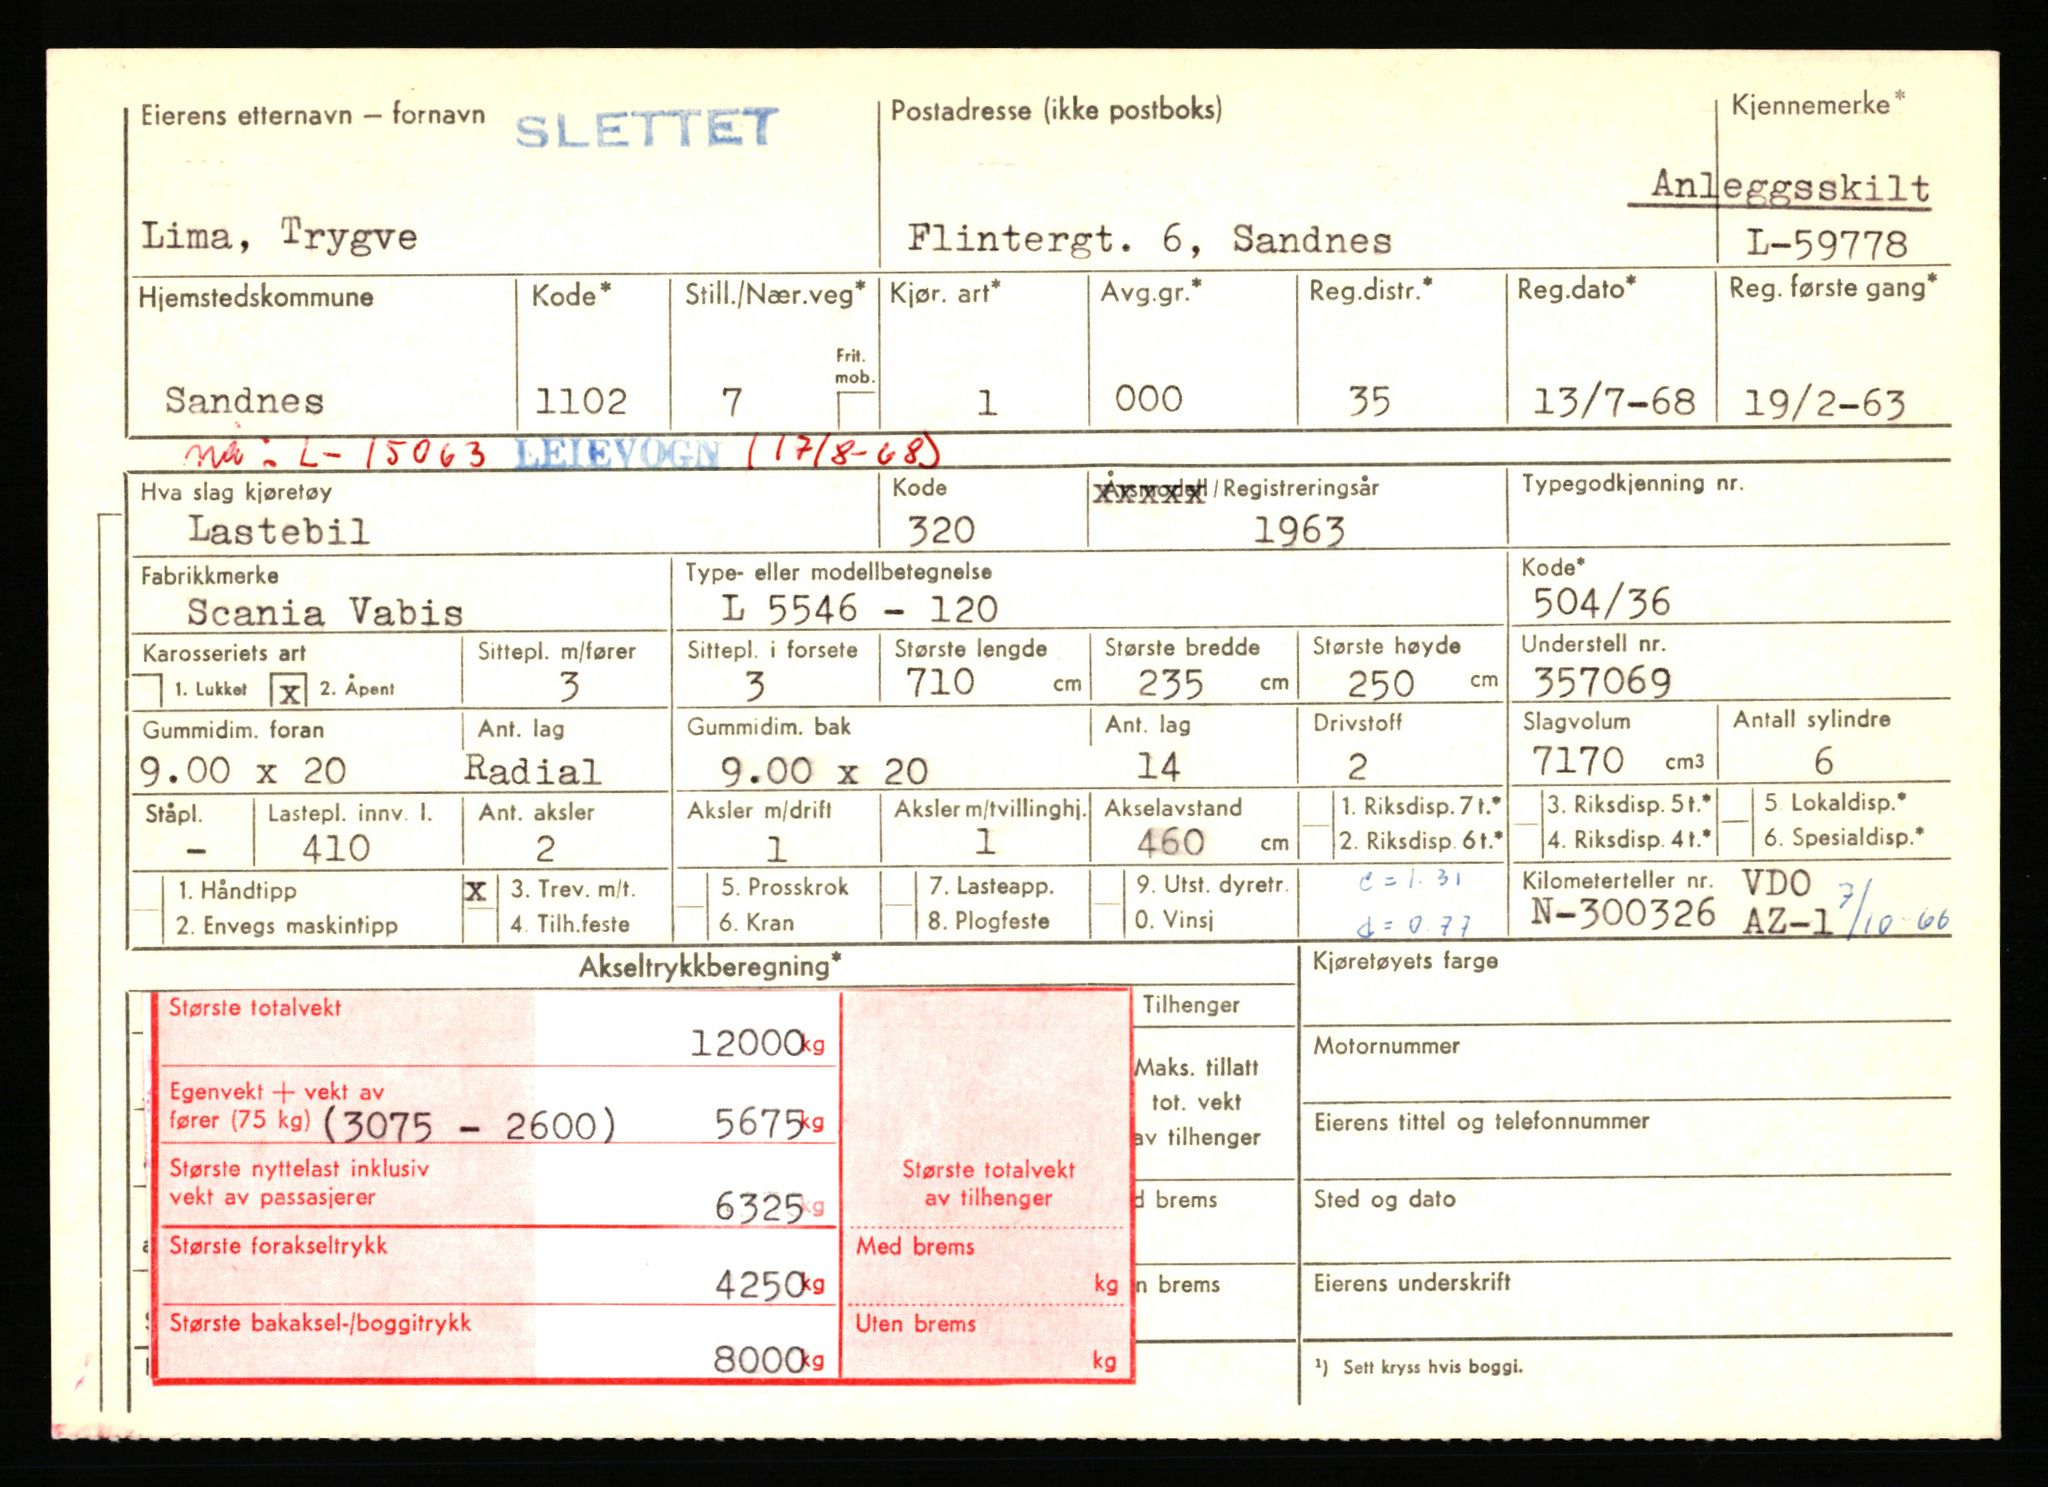 Eierens etternavn – fornavn SLETTET Postadresse (ikke postboks) Kjennemerke*
Anleggsskilt
Lima, Trygve Flintergt. 6, Sandnes L-59778
Hjemstedskommune Kode* Still./Nær.veg* Kjør. art* Avg.gr.* Reg.distr.* Reg.dato* Reg. første gang*
Frit.
mob.
Sandnes 1102 7 1 000 35 13/7-68 19/2-63
nå: L-15063 LEIEVOGN (17/8-68)
Hva slag kjøretøy Kode Årsmodell/Registreringsår Typegodkjenning nr.
Lastebil 320 1963
Fabrikkmerke Type- eller modellbetegnelse Kode*
Scania Vabis L 5546 - 120 504/36
Karosseriets art Sittepl. m/fører Sittepl. i forsete Største lengde Største bredde Største høyde Understell nr.
1. Lukket x 2. Åpent 3 3 710 cm 235 cm 250 cm 357069
Gummidim. foran Ant. lag Gummidim. bak Ant. lag Drivstoff Slagvolum Antall sylindre
9.00 x 20 Radial 9.00 x 20 14 2 7170 cm3 6
Ståpl. Lastepl. innv. l. Ant. aksler Aksler m/drift Aksler m/tvillinghj. Akselavstand 1. Riksdisp. 7 t.* 3. Riksdisp. 5 t.* 5. Lokaldisp.*
- 410 2 1 1 460 cm 2. Riksdisp. 6 t.* 4. Riksdisp. 4 t.* 6. Spesialdisp.*
1. Håndtipp x 3. Trev. m/t. 5. Prosskrok 7. Lasteapp. 9. Utst. dyretr. c = 1.31 Kilometerteller nr. VDO
2. Envegs maskintipp 4. Tilh.feste 6. Kran 8. Plogfeste 0. Vinsj d = 0.77 N-300326 AZ-1 7/10-66
Akseltrykkberegning* Kjøretøyets farge
Største totalvekt Tilhenger
12000 kg Motornummer
Maks. tillatt
Egenvekt + vekt av tot. vekt
fører (75 kg) (3075 - 2600) 5675 kg Eierens tittel og telefonnummer
av tilhenger
Største nyttelast inklusiv Største totalvekt
vekt av passasjerer 6325 kg av tilhenger d brems Sted og dato
Største forakseltrykk Med brems
4250 kg kg n brems Eierens underskrift
Største bakaksel-/boggitrykk Uten brems
8000 kg kg ¹) Sett kryss hvis boggi.